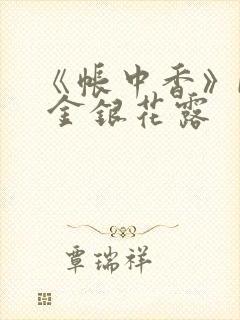 《帳中香》
金銀花露
覃瑞祥